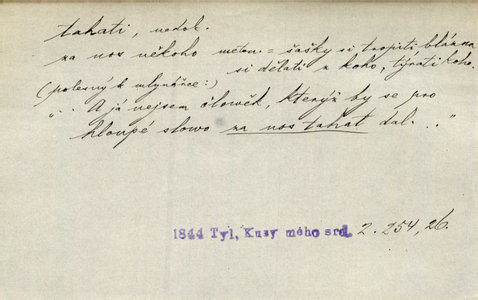 tahati, nedok.
za nos někoho meton. = šašky si tropiti, blázna
si dělati z koho, týrati koho.
(polesný k mlynářce:)
".. A já nejsem člowěk, kterýž by se pro
hloupé slowo za nos tahat dal..."
1844 Tyl, Kusy mého srd. 2. 254, 26.